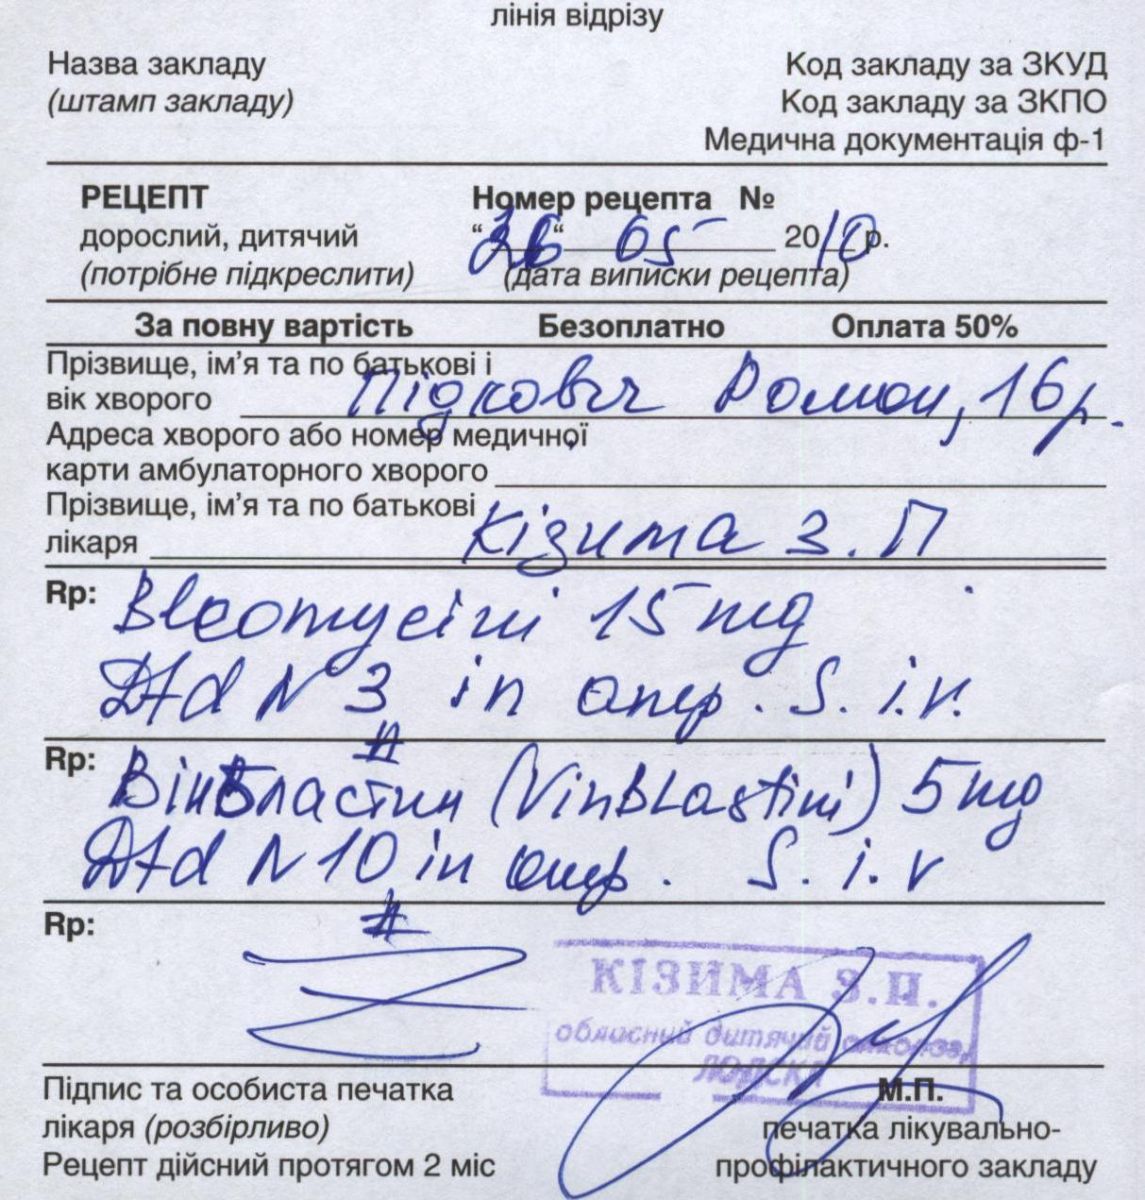 лінія відрізу
Назва закладу
(штамп закладу)
Код закладу за ЗКУД
Код закладу за ЗКПО
Медична документація ф-1
РЕЦЕПТ
дорослий, дитячий
(потрібне підкреслити)
Номер рецепта №
“26“ 05 2010 р.
(дата виписки рецепта)
За повну вартість Безоплатно Оплата 50%
Прізвище, ім’я та по батькові і
вік хворого Підкович Роман, 16 р.
Адреса хворого або номер медичної
карти амбулаторного хворого
Прізвище, ім’я та по батькові
лікаря Кізима З. П
Rp: Bleomycini 15 mg
Dtd N 3 in amp. S. i.v.
#
Rp: Вінбластин (Vinblastini) 5 mg
Dtd N 10 in amp. S. i. v
#
Rp:
КІЗИМА З.П.
обласний дитячий
Підпис та особиста печатка
лікаря (розбірливо)
Рецепт дійсний протягом 2 міс
М.П.
печатка лікувально-
профілактичного закладу